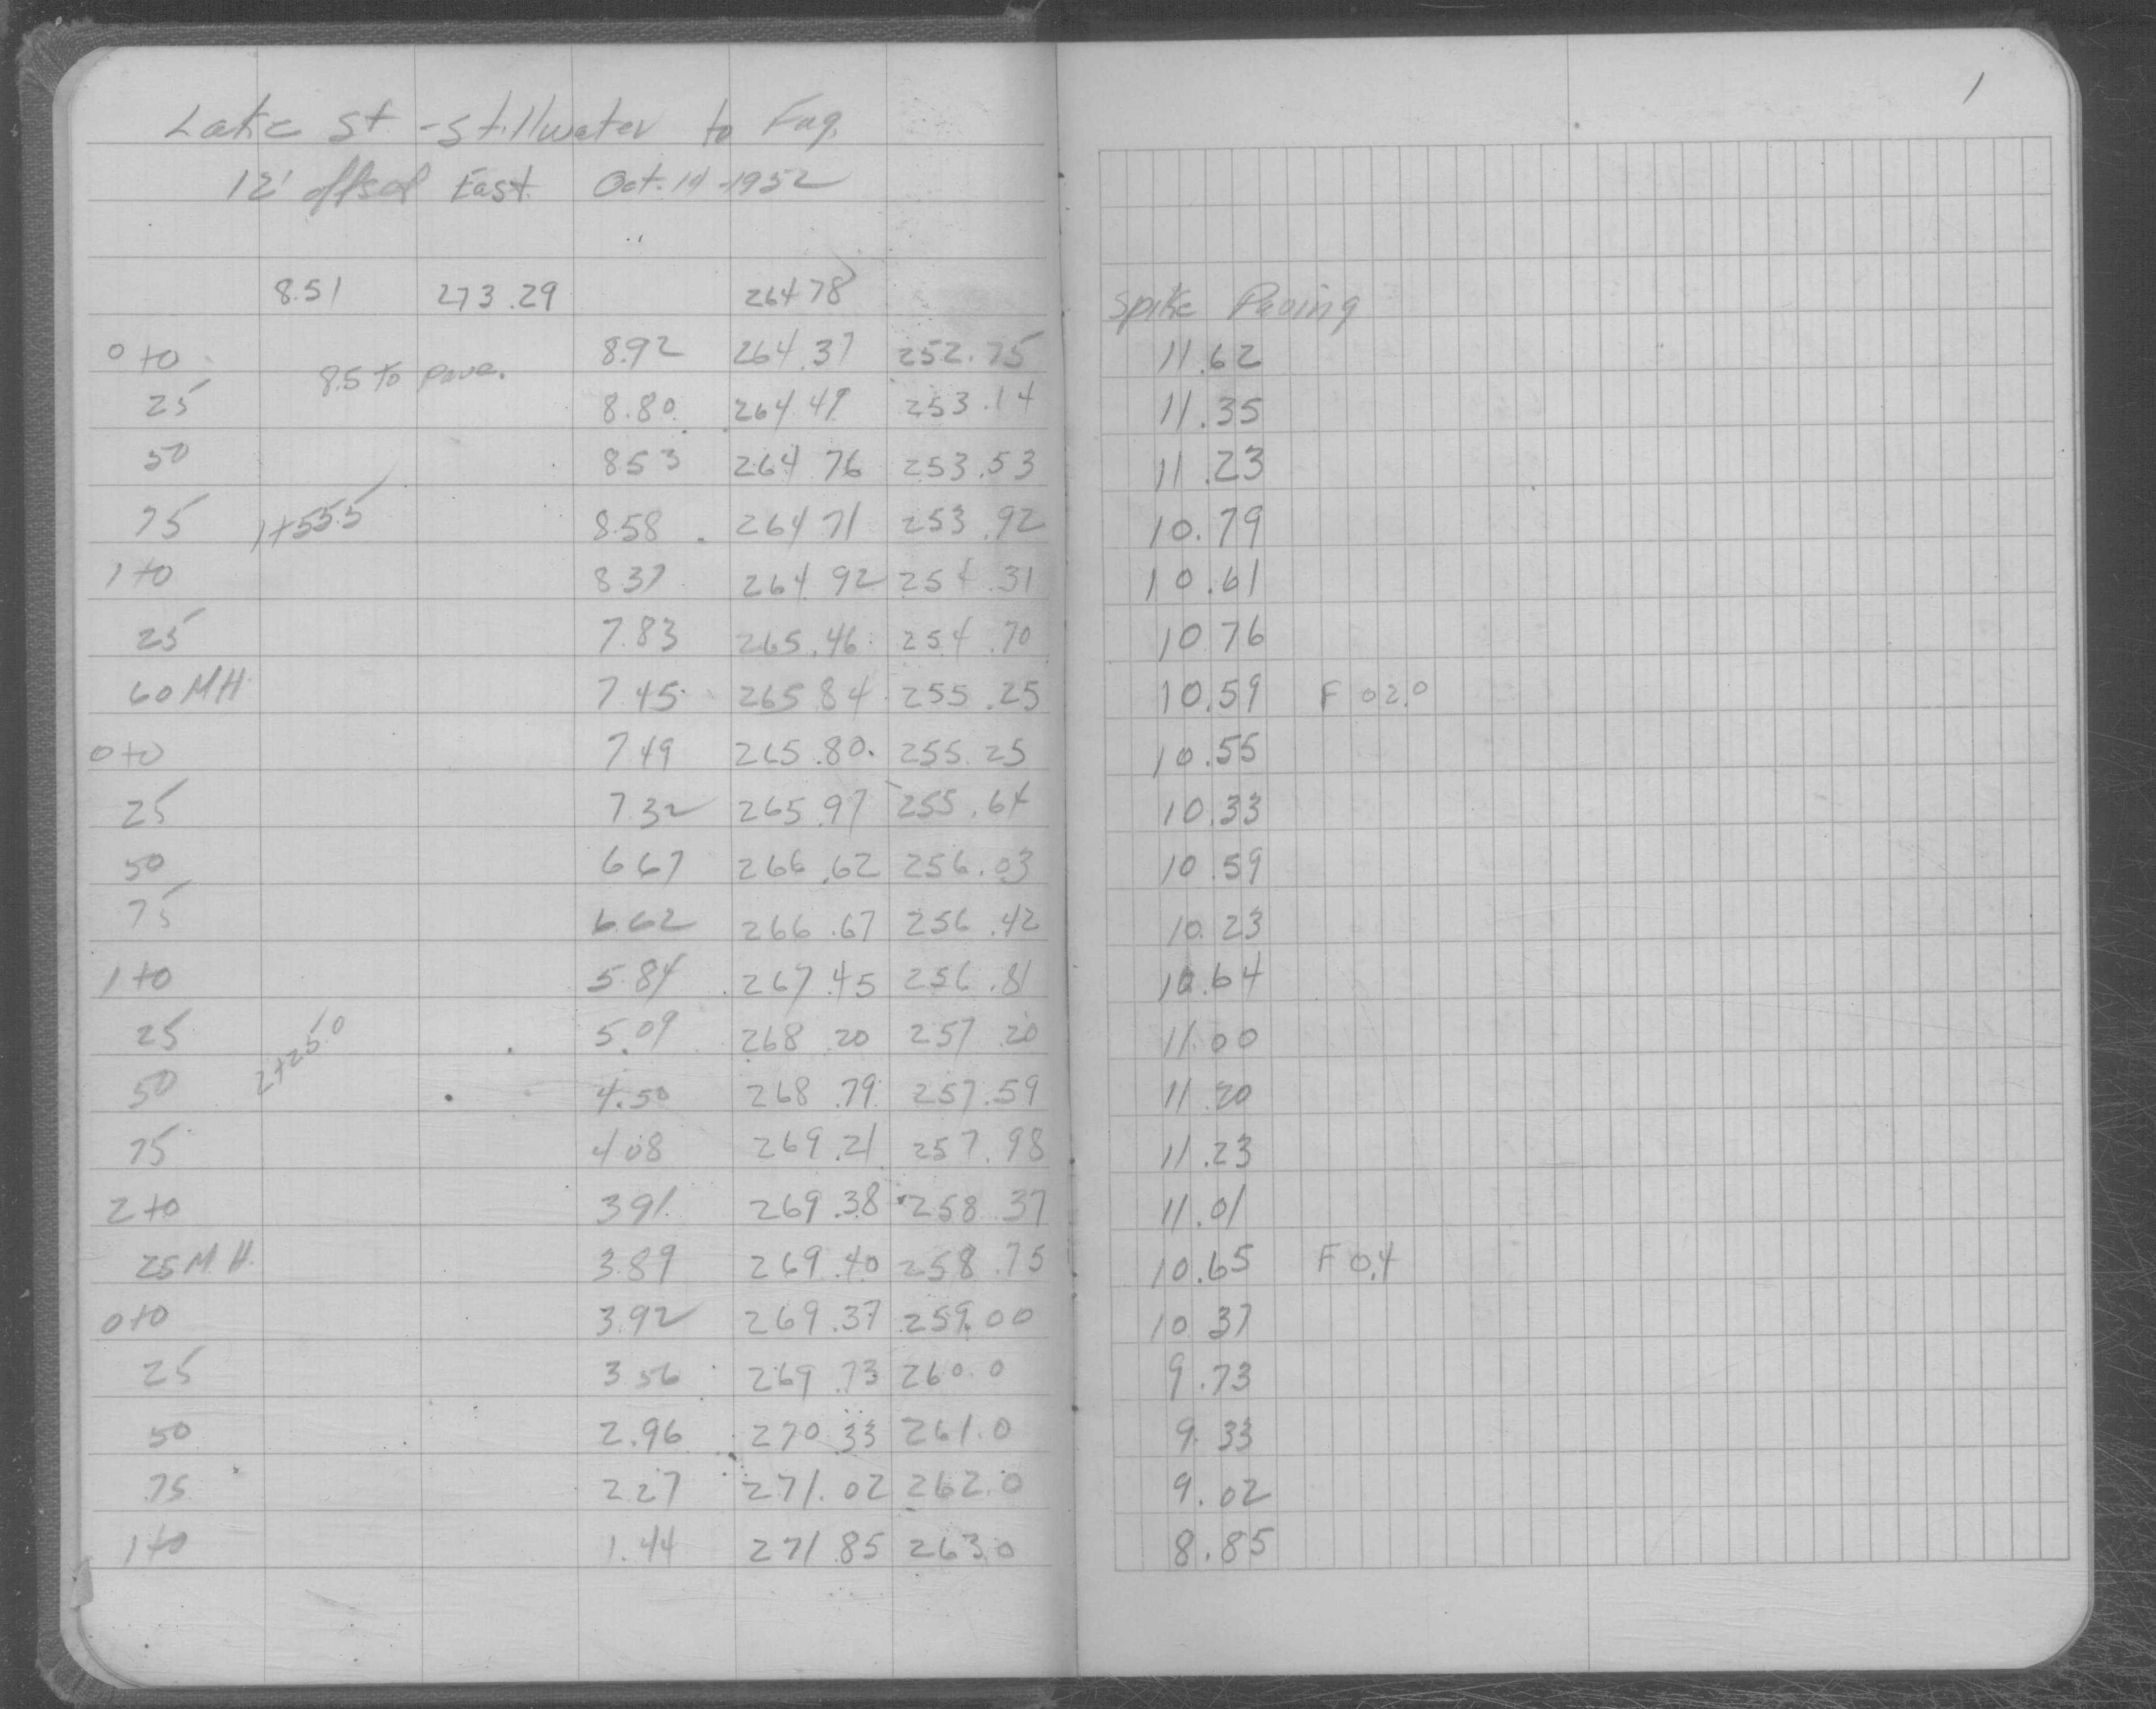 1
Lake St - Stillwater to Fug.
12' offset East Oct. 14 - 1952
8.51 273.29 264 78 Spike Paving
0+0 8.92 264.37 252.75 11.62
8.5 to pave.
25 8.80 264.49 253.14 11.35
50 8 53 264 76 253.53 11.23
75 1+55.5 8.58 264 71 253.92 10.79
1+0 8 37 264.92 254.31 10.61
25 7.83 265.46 254.70 10 76
60 MH 7 45 265 84 255.25 10.59 F 02.0
0+0 7 49 265.80 255.25 10.55
25 7 32 265.97 255.64 10.33
50 6 67 266.62 256.03 10.59
75 6.62 266.67 256.42 10.23
1+0 5.84 267.45 256.81 10.64
25 5.09 268.20 257.20 11.00
2+25.0
50 4.50 268.79 257.59 11.20
75 4 08 269.21 257.98 11.23
2+0 3 91 269.38 258.37 11.01
25 M.H. 3.89 269.40 258.75 10.65 F 0.4
0+0 3.92 269.37 259.00 10 37
25 3 56 269.73 260.0 9.73
50 2.96 270.33 261.0 9.33
75 2 27 271.02 262.0 9.02
1+0 1.44 271.85 263.0 8.85